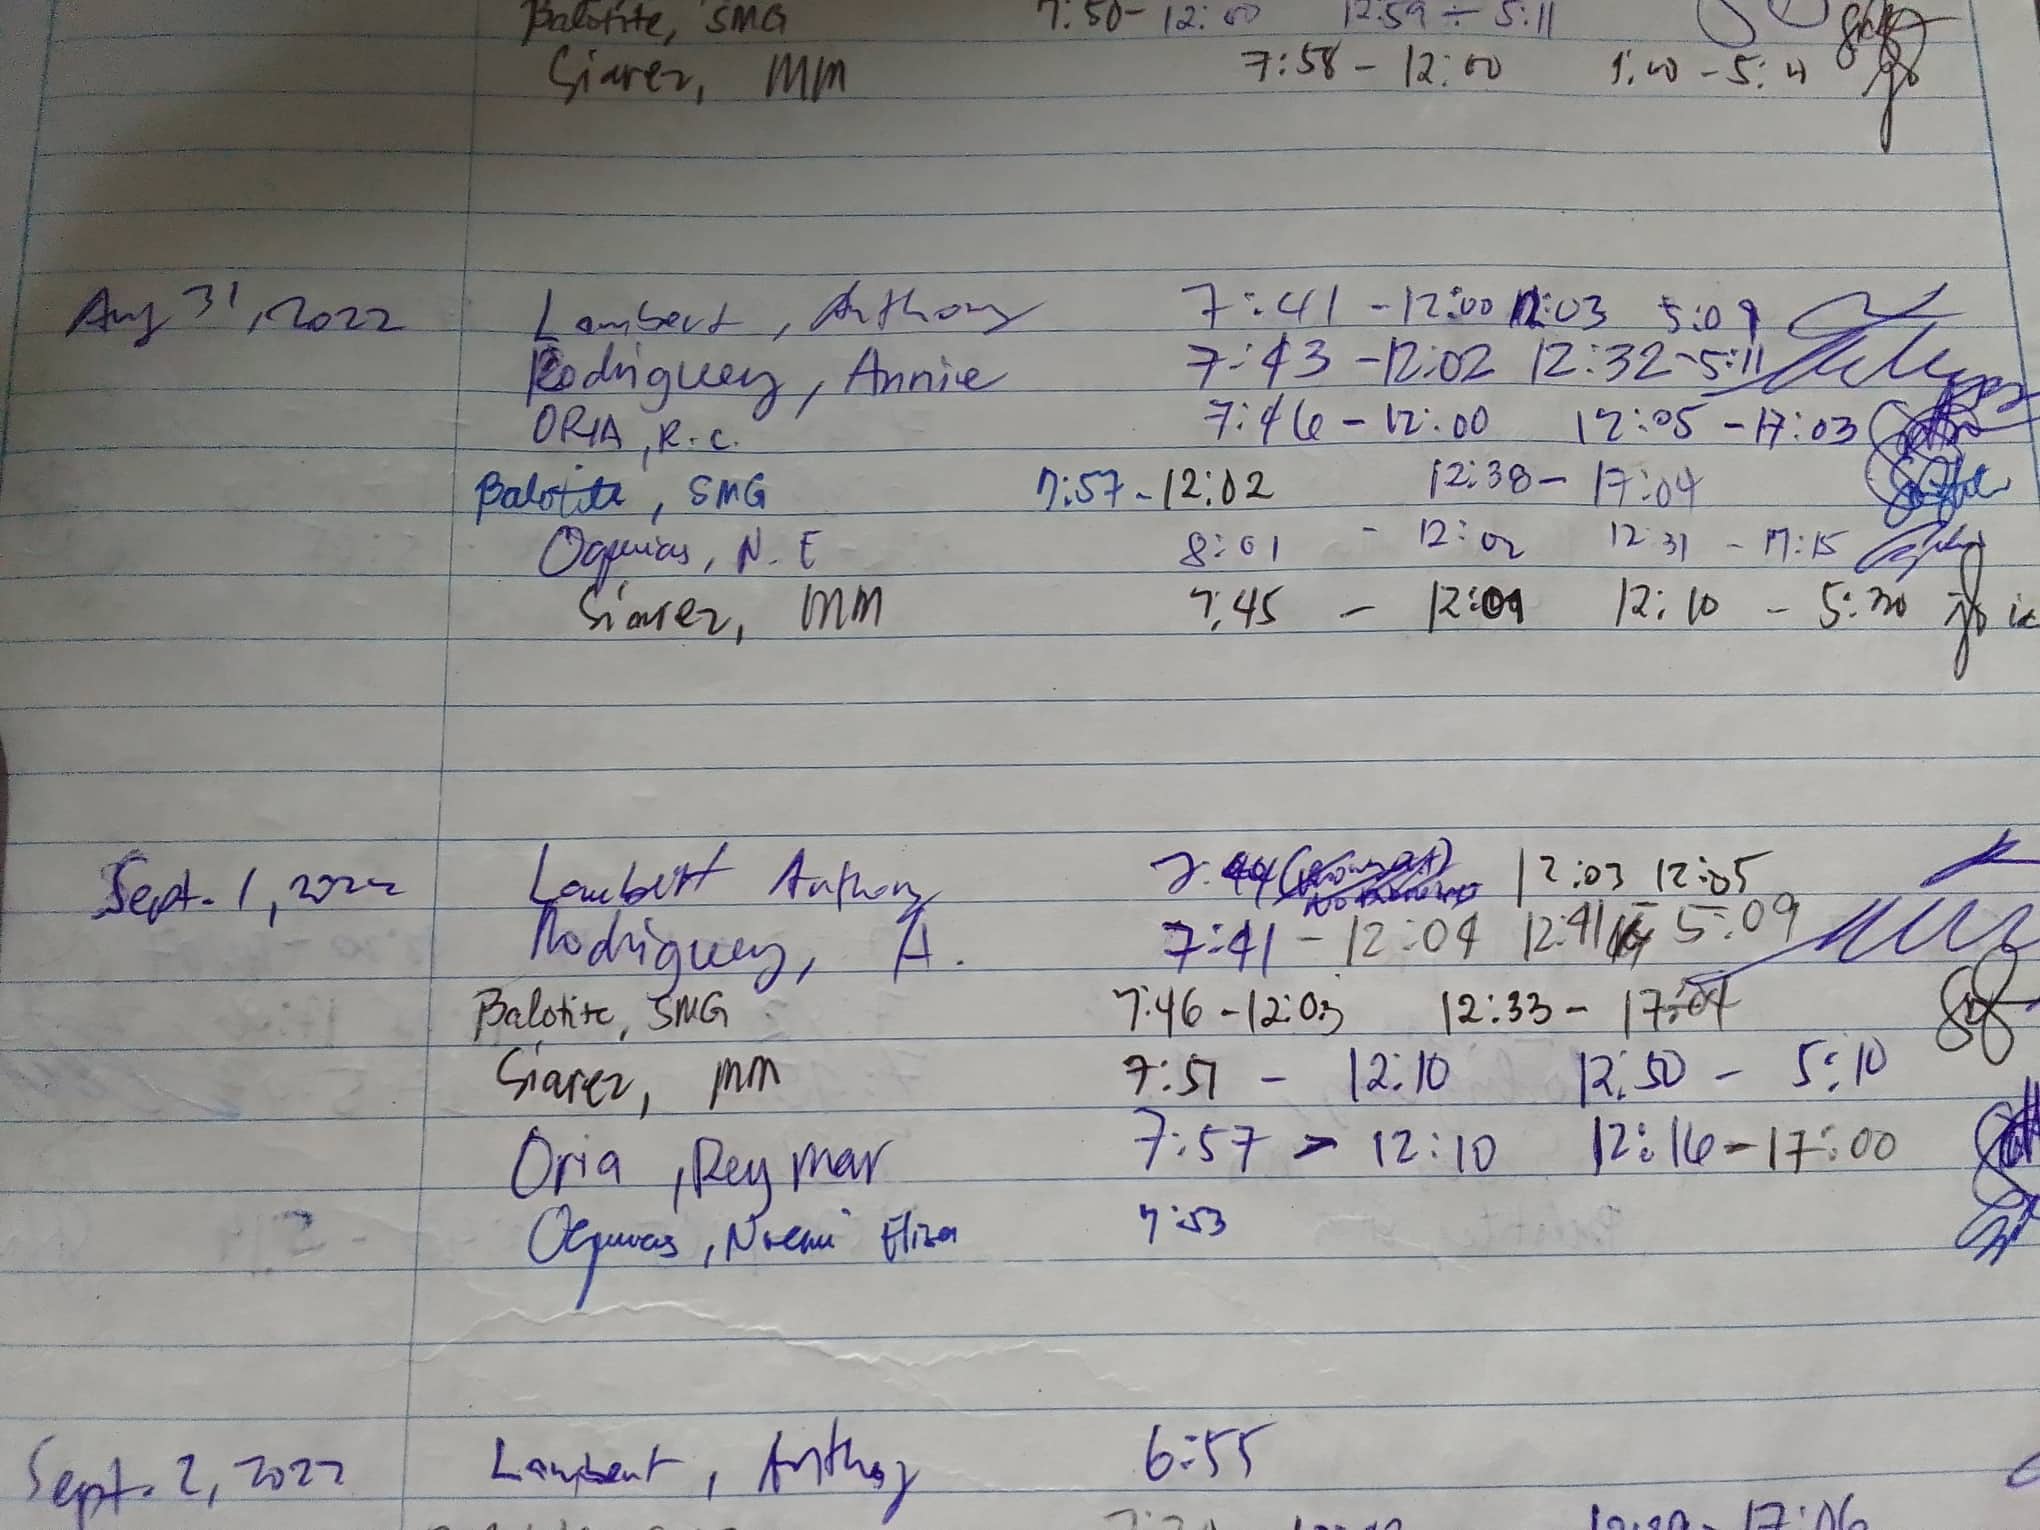 Balotite, SMG 7:50 - 12:00 12:59 - 5:11
Siarez, MM 7:58 - 12:00 1:00 - 5:11
Aug 31, 2022 Lambert, Anthony 7:41 - 12:00 12:03 5:09
Rodriguez, Annie 7:43 - 12:02 12:32 - 5:11
ORIA, R.C. 7:46 - 12:00 12:05 - 17:03
Balotite, SMG 7:57 - 12:02 12:38 - 17:04
N.E 8:01 - 12:02 12 31 - 17:15
Siarez, MM 7:45 - 12:09 12:10 - 5:30
Sept. 1, 2022 Lambert Anthony 7:44 12:03 12:05
Rodriguez, A. 7:41 - 12:04 12:41 5:09
Balotite, SMG 7:46 - 12:03 12:33 - 17:04
Siarez, MM 7:51 - 12:10 12:50 - 5:10
Oria, Reymar 7:57 - 12:10 12:16 - 17:00
Noemi Eliza 7:53
Sept. 2, 2022 Lambert, Anthony 6:55
17:06